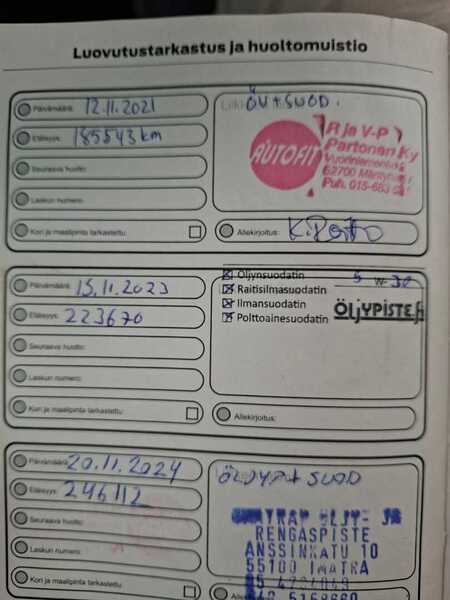 Luovutustarkastus ja huoltomuistio
Päivämäärä: 12.11.2021
Etäisyys: 185543 km
Seuraava huolto:
Laskun numero:
Kori ja maalipinta tarkastettu:
ÖV+SUOD.
AUTOFIT
R ja V-P
Partonen Ky
52700 Mäntyharju
Puh. 015-683
Allekirjoitus:
Päivämäärä: 15.11.2023
Etäisyys: 223670
Seuraava huolto:
Laskun numero:
Kori ja maalipinta tarkastettu:
Öljynsuodatin 5 W-30
Raitisilmasuodatin
Ilmansuodatin
Polttoainesuodatin
ÖLJYPISTE.fi
Allekirjoitus:
Päivämäärä: 20.11.2024
Etäisyys: 246112
Seuraava huolto:
Laskun numero:
Kori ja maalipinta tarkastettu:
ÖLJY + SUOD
ÖLJY- JA
RENGASPISTE
ANSSINKATU 10
55100 IMATRA